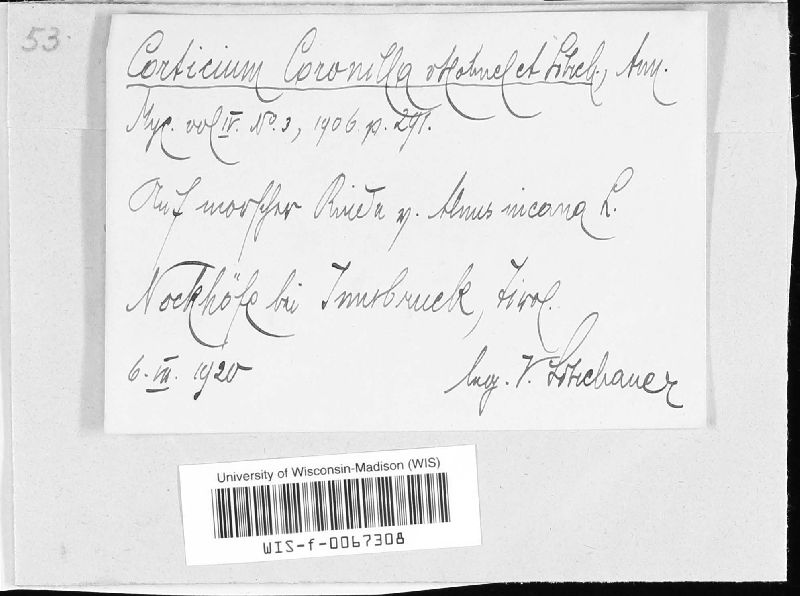 53
Corticium Coronilla v Hohnel et Litsch., Ann.
Myc. vol IV. No. 3, 1906 p. 291.
Auf morscher Rinde v. Alnus incana L.
Nockhöfe bei Innsbruck, Tirol.
6. III. 1920
leg. V. Litschauer
University of Wisconsin-Madison (WIS)
WIS-f-0067308